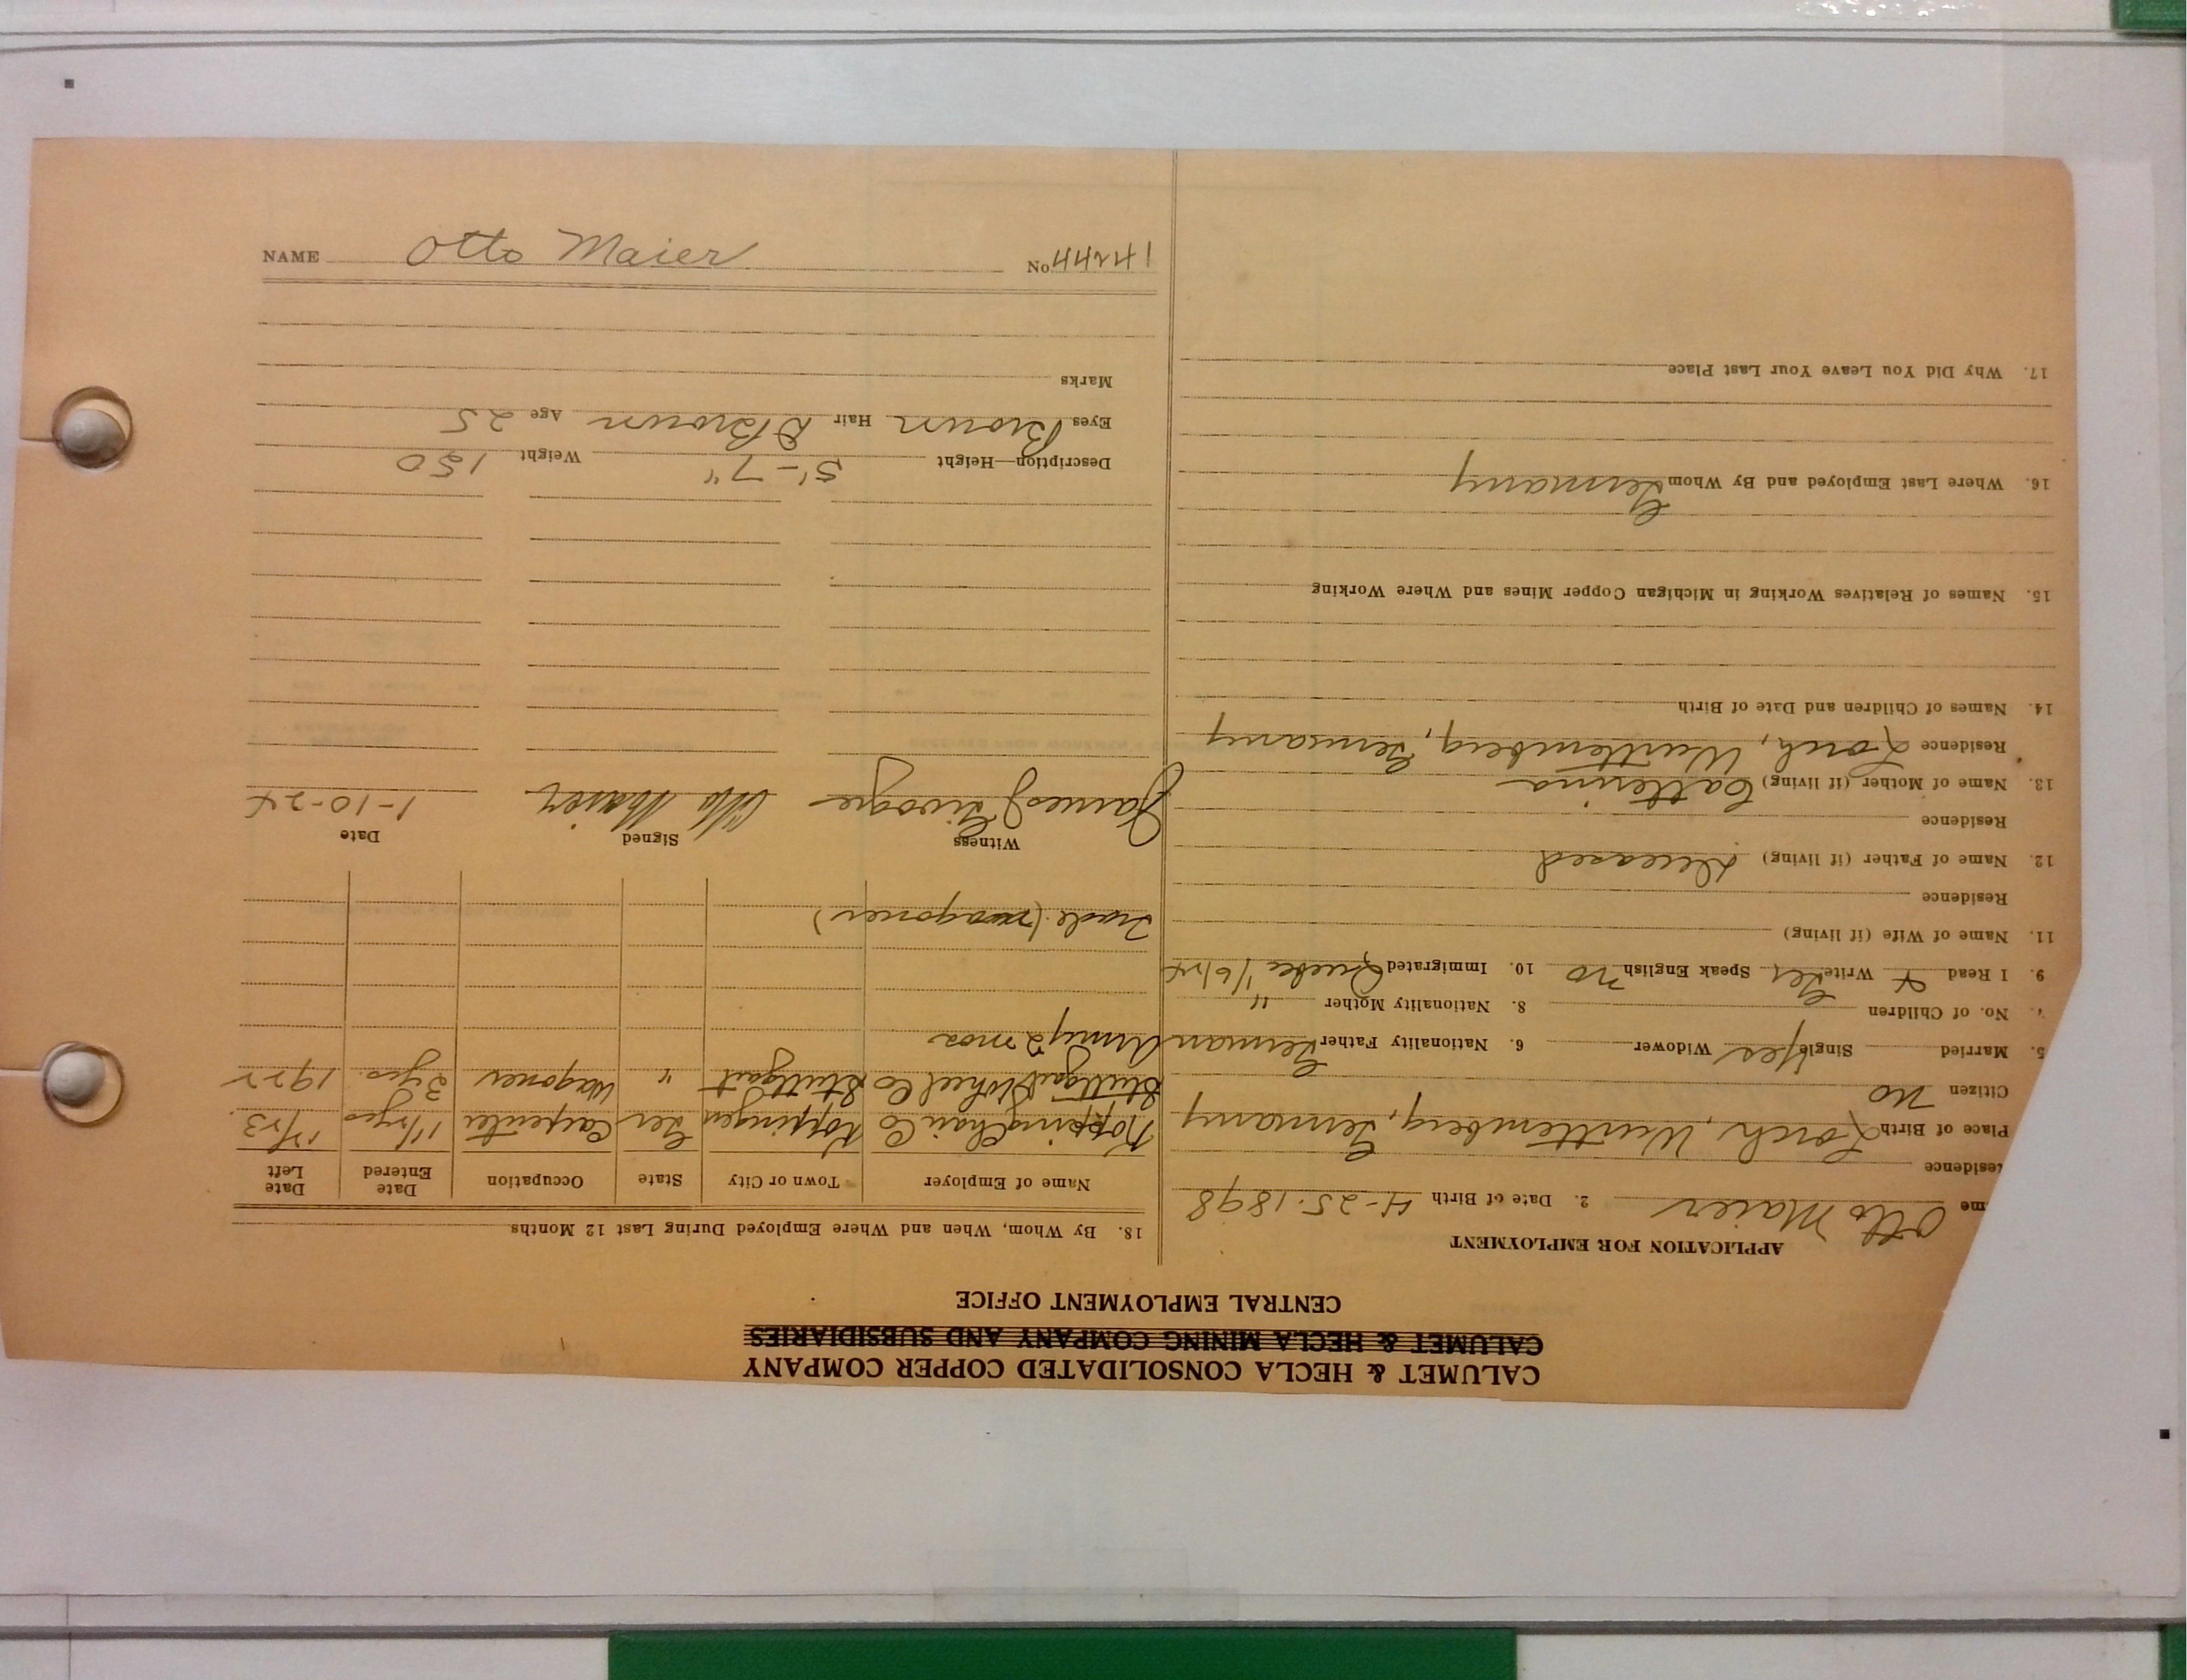 CALUMET & HECLA CONSOLIDATED COPPER COMPANY
CALUMET & HECLA MINING COMPANY AND SUBSIDIARIES
CENTRAL EMPLOYMENT OFFICE
APPLICATION FOR EMPLOYMENT
me Otto Maier 2. Date of Birth 4-25-1898
esidence
Place of Birth Lorch, Württemberg, Germany
Citizen no
5. Married Single Yes Widower 6. Nationality Father German
7. No. of Children 8. Nationality Mother "
9. I Read & Write Ger Speak English no 10. Immigrated 1/6/24
11. Name of Wife (if living)
Residence
12. Name of Father (if living) Deceased
Residence
13. Name of Mother (if living) Catterina
Residence Lorch, Württemberg, Germany
14. Names of Children and Date of Birth
15. Names of Relatives Working in Michigan Copper Mines and Where Working
16. Where Last Employed and By Whom Germany
17. Why Did You Leave Your Last Place
18. By Whom, When and Where Employed During Last 12 Months
Name of Employer Town or City State Occupation Date Entered Date Left
Chair Co Ger Carpenter 1 1/2 yrs
Stuttgart Wheel Co Stuttgart " Wagoner 2 yrs. 1922
Army 2 mos
Trade (wagoner)
Witness Signed Date
James Otto Maier 1-10-24
Description—Height 5'-7" Weight 150
Eyes Brown Hair D Brown Age 25
Marks
NAME Otto Maier No. 14244